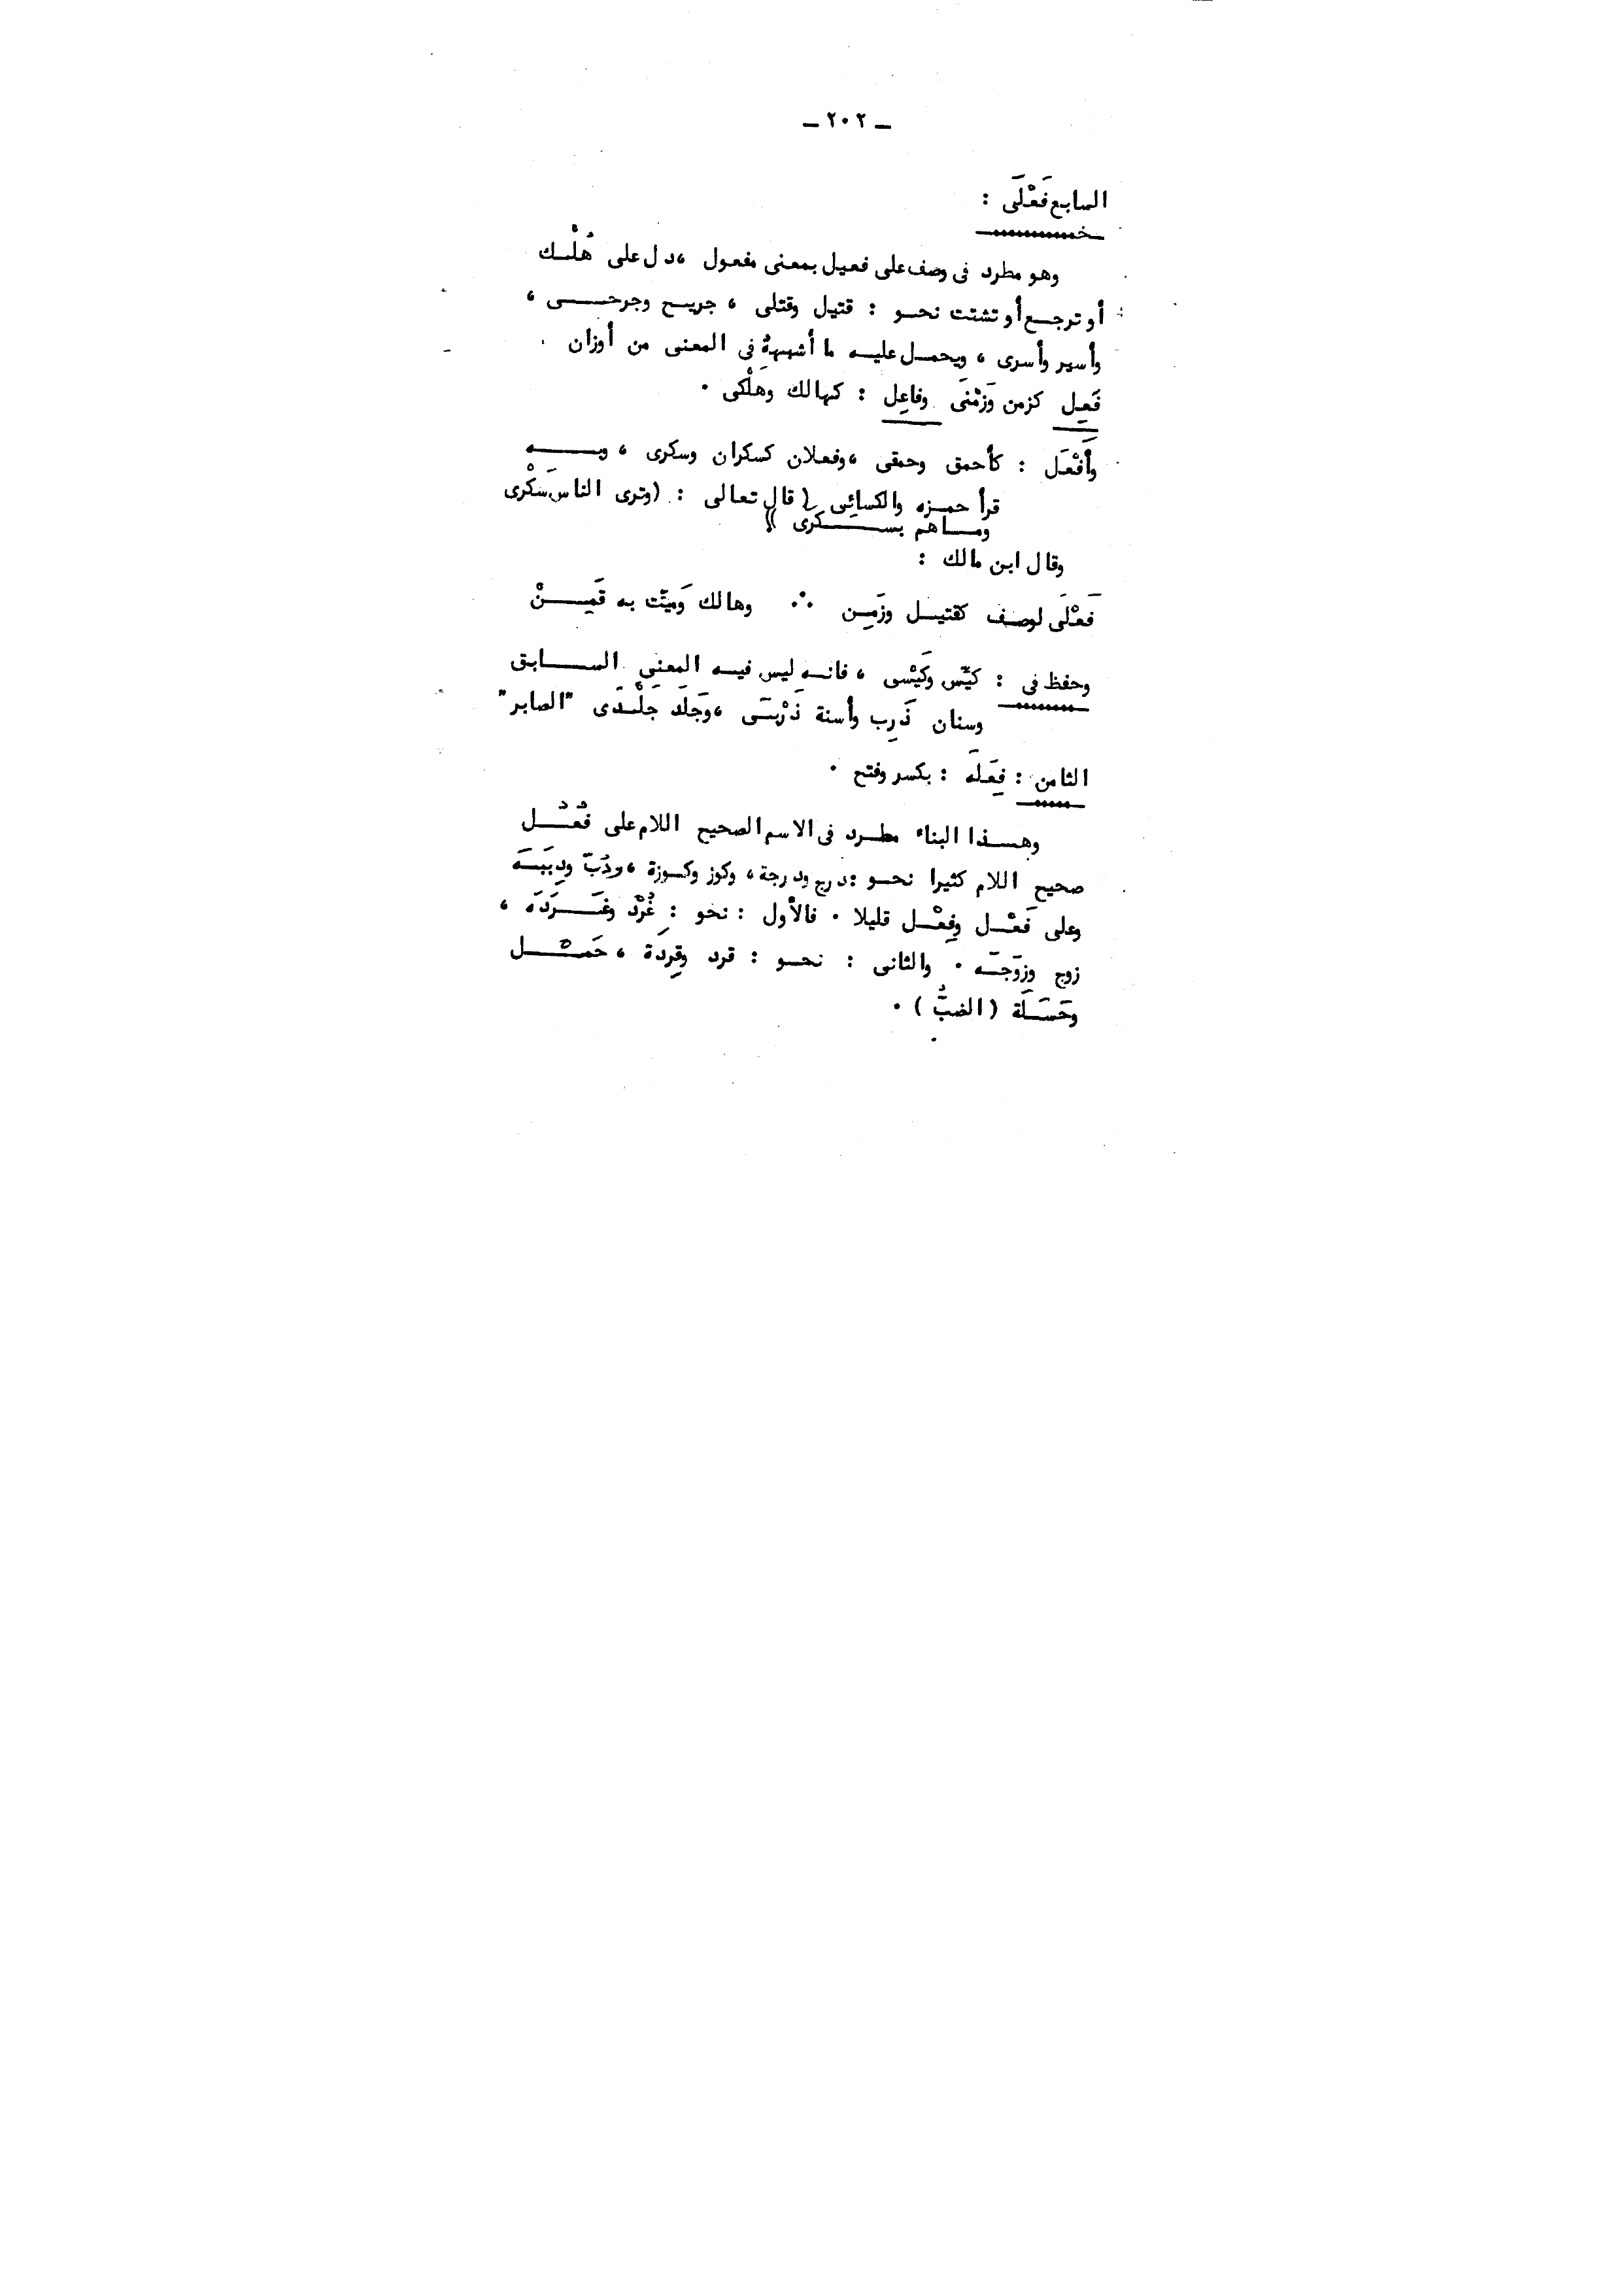 — ٢٠٢ —
السابع فَعْلَى :
وهو مطرد فى وصف على فعيل بمعنى مفعول ، دل على هُلْك
أو ترجع أو تشتت نحو : قتيل وقتلى ، جريح وجرحى ،
وأسير وأسرى ، ويحمل عليه ما أشبهه فى المعنى من أوزان
فَعِل كزمن وَزْمْنَى وفاعِل : كهالك وهَلْكى .
وأَفْعَل : كأحمق وحمقى ، وفعلان كسكران وسكرى ، وبه
قرأ حمزه والكسائِى ( قال تعالى : (وترى الناس سَكْرى
وماهم بسكرى ))
وقال ابن مالك :
فَعْلَى لوصف كقتيل وزَمِن ∴ وهالك وَميّت به قَمِنْ
وحفظ فى : كيّس وكَيْسى ، فانه ليس فيه المعنى السابق
وسنان ذَرِب وأسنة ذَرْبَى ، وجَلَد جَلْدَى "الصابر"
الثامن : فِعَلَه : بكسر وفتح .
وهذا البناء مطرد فى الاسم الصحيح اللام على فُعُل
صحيح اللام كثيرا نحو : درج ودرجة ، وكوز وكوزة ، ودُبّ ودِبَبَه
وعلى فَعْل وفِعْل قليلا . فالأول : نحو : غُرْد وغَرَدَه ،
زوج وزوَجَه . والثانى : نحو : قرد وقِرِدَة ،
وحَسَلَة (الضبُّ) .